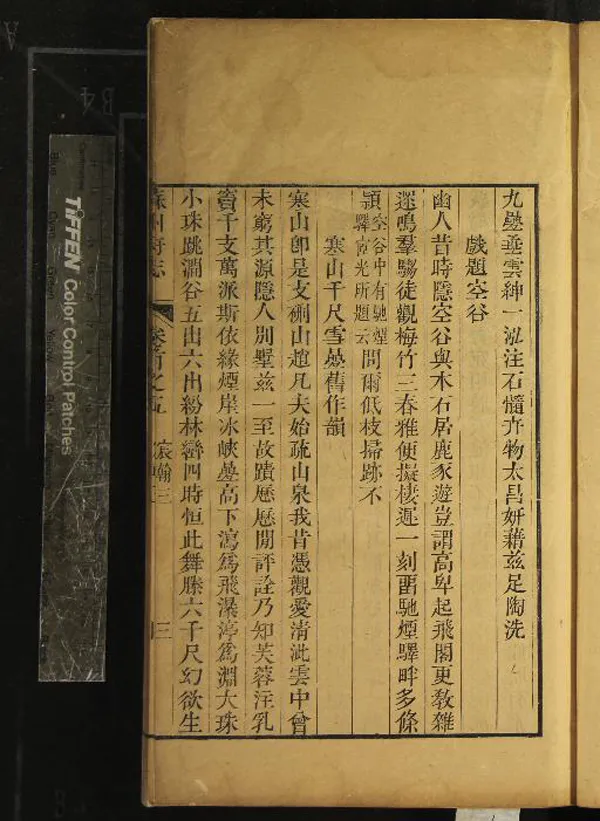 九疊垂雲紳一泓注石髓卉物太昌妍藉茲足陶洗
戲題空谷
幽人昔時隱空谷與木石居鹿豕遊豈謂高卑起飛閣更教雜
遝鳴羣騶徒觀梅竹三春雅便擬棲遲一刻畱馳煙驛畔多條
頴空谷中有馳煙驛宸光所題云問爾低枝掃跡不
寒山千尺雪疊舊作韻
寒山卽是支硎山趙凡夫始疏山泉我昔憑觀愛清泚雲中曾
未窮其源隱人別墅茲一至故蹟歷歷閒評詮乃知芙蓉注乳
竇千支萬派斯依緣煙岸冰峽疊高下瀉爲飛瀑渟爲淵大珠
小珠跳澗谷五出六出紛林巒四時恒此舞滕六千尺幻欲生
蘇州府志 卷首之五 宸翰三 三
TIFFEN Color Control Patches
B4
A